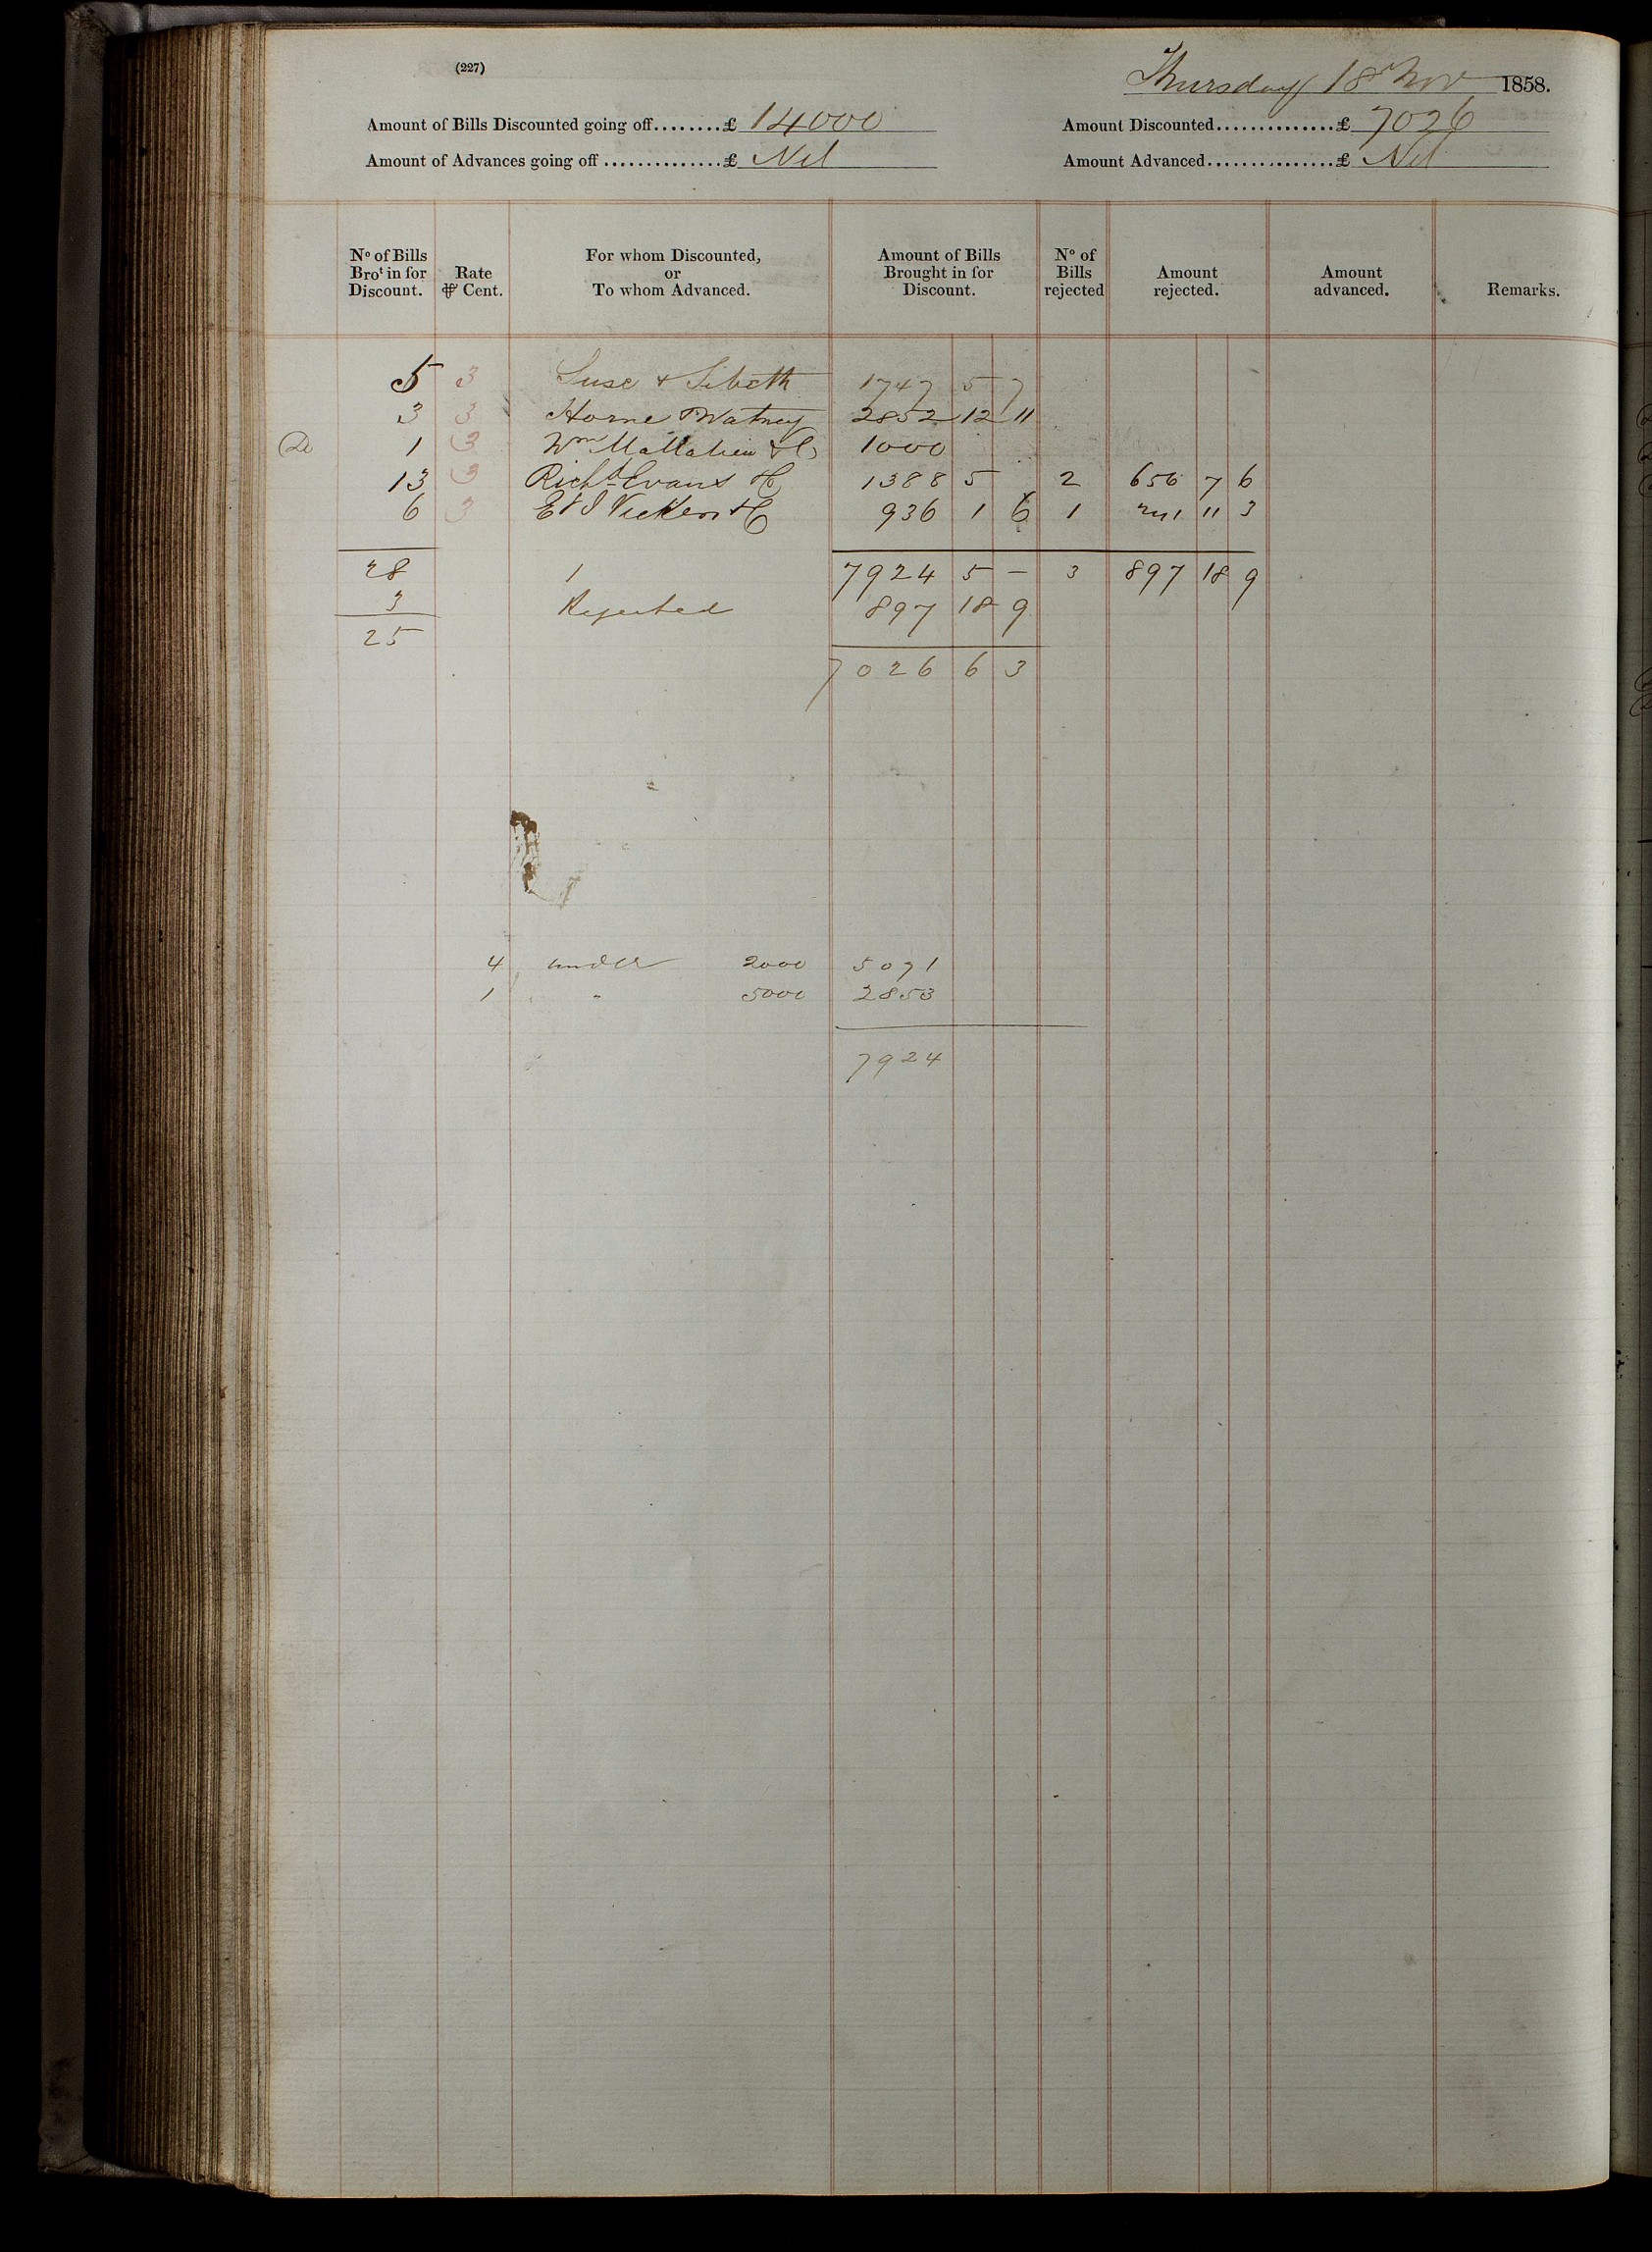 (227)
Thursday 18 Nov 1858.
Amount of Bills Discounted going off........£ 14000
Amount Discounted..............£ 7026
Amount of Advances going off..............£ Nil
Amount Advanced...............£ Nil
Nº of Bills Broᵗ in for Discount. Rate ⅌ Cent. For whom Discounted, or To whom Advanced. Amount of Bills Brought in for Discount. Nº of Bills rejected Amount rejected. Amount advanced. Remarks.
5 3 Suse & Sibeth 1747 5 7
3 3 Horne & Watney 2852 12 11
1 3 Wm & Co 1000
13 3 Richd Evans & Co 1388 5 2 656 7 6
6 3 E & J Vickers & Co 936 1 6 1 241 11 3
28 7924 5 – 3 897 18 9
3 Rejected 897 18 9
25
7026 6 3
4 under 2000 5071
1 " 5000 2853
7924